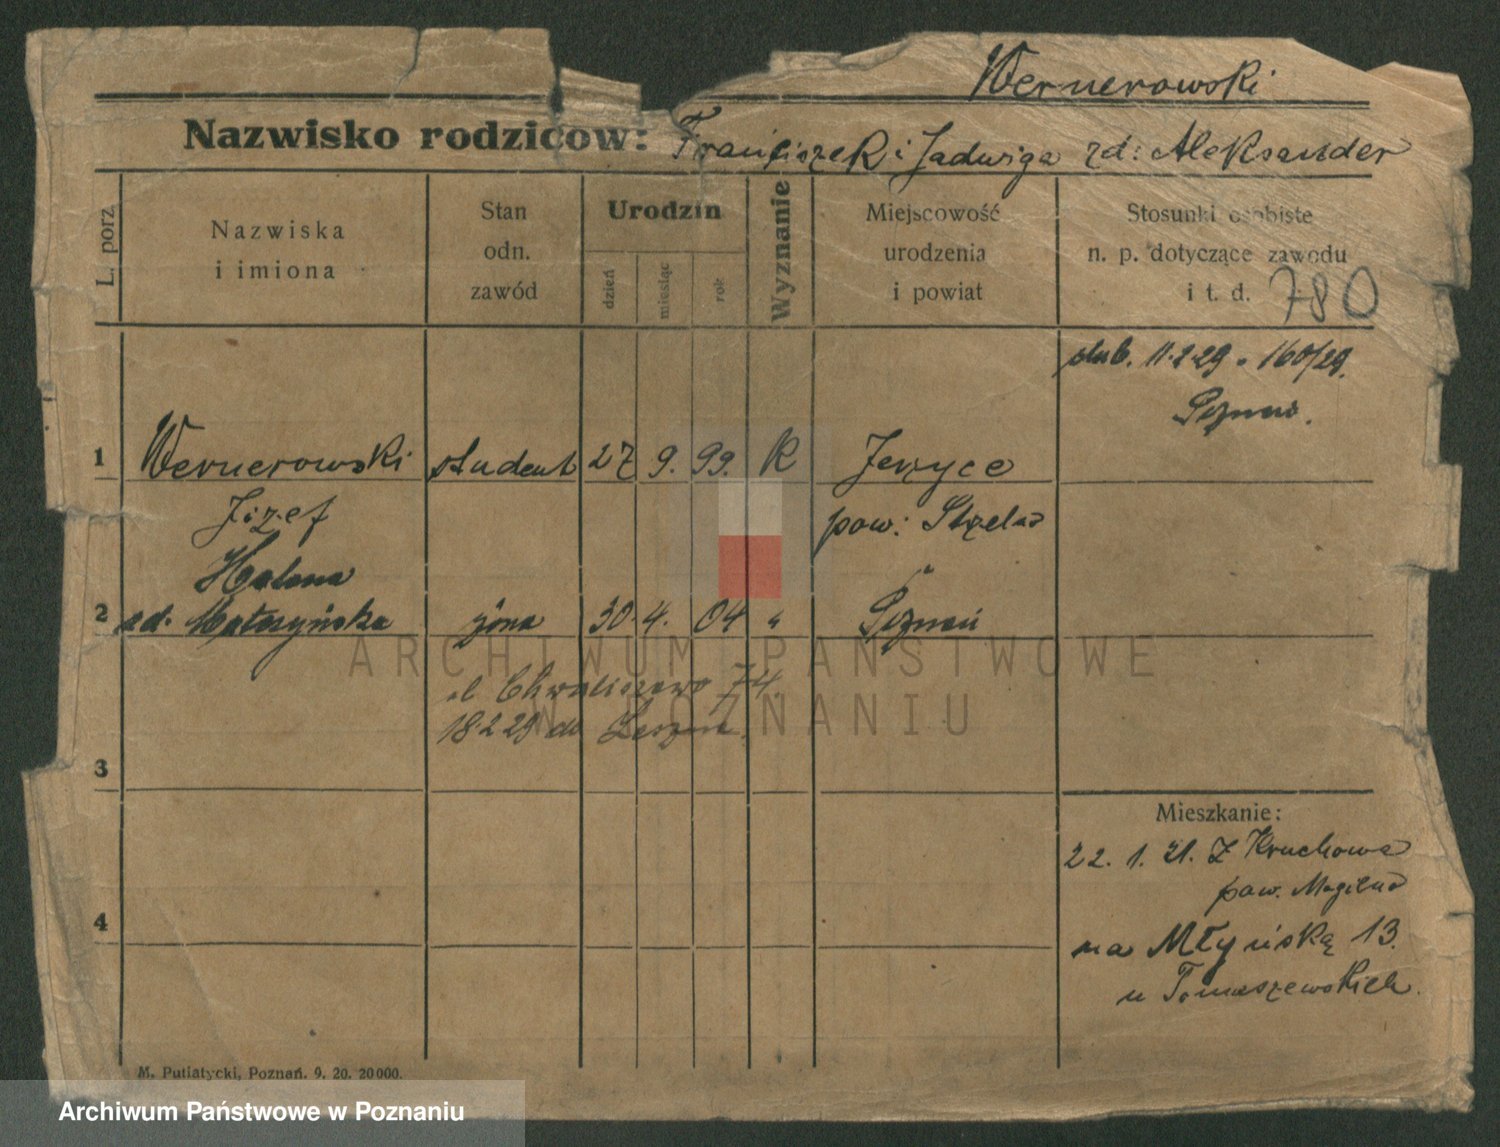 Wernerowski
Nazwisko rodziców: Franciszek i Jadwiga zd: Aleksander
L. porz.
Nazwiska
i imiona
Stan
odn.
zawód
Urodzin
dzień
miesiąc
rok
Wyznanie
Miejscowość
urodzenia
i powiat
Stosunki osobiste
n. p. dotyczące zawodu
i t. d. 780
ślub. 11.2.29. 160/29.
Poznań.
1 Wernerowski student 27 9. 99. K Jerzyce
Józef pow: Strzelno
Halena
2 zd. żona 30. 4. 04 " Poznań
ARCHIWUM PAŃSTWOWE
W POZNANIU
ul Chwaliszewo 74.
18.2.29 do
3
Mieszkanie:
22. 1. 21. Z Kruchowa
pow. Mogilno
4
na Młyńską 13.
u Tomaszewskich.
M. Putiatycki, Poznań. 9. 20. 20000.
Archiwum Państwowe w Poznaniu